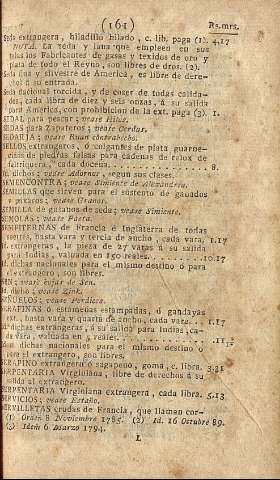 (161) Rs.mrs.
Seda extrangera, hiladillo hilado, c. lib. paga (1). 4.17
NOTA. La seda y lana que empleen en sus
texidos Fabricantes de gasas y texidos de oro y
plata de todo el Reyno, son libres de dros. (2).
Seda fina y silvestre de América, es libre de dere-
chos á su entrada.
Seda nacional torcida, y de coser de todas calida-
des, cada libra de diez y seis onzas, á su salida
para América, con prohibicion de la ext. paga (3). 1.
SEDAL para pescar; vease Hilos.
SEDAS para Zapateros; vease Cerdas.
SEDARIA; vease Ruan contrahecho.
SELLOS extrangeros, ó colgantes de plata guarne-
cidos de piedras falsas para cadenas de relox de
faltriquera, cada docena. 8.
Id. dichos; vease Adornos, segun sus clases.
SEMENCONTRA; vease Simiente de Alexandría.
SEMILLAS que sirven para el sustento de ganados
y páxaros; vease Granos.
SEMILLA de gusanos de seda; vease Simiente.
SEMOLAS; vease Pasta.
SEMPITERNAS de Francia é Inglaterra de todas
suertes, hasta vara y tercia de ancho, cada vara, 1.17
Id. extrangeras, la pieza de 27 varas á su salida
para Indias, valuada en 150 reales. 10.17
Id. dichas nacionales para el mismo destino ó para
el extrangero, son libres.
SEN; vease hojas de Sen.
Id. dicho; vease Zink.
SEÑUELOS; vease Perdices.
SERAFINAS ó estameñas estampadas, ó gandayas
ext., hasta vara y quarta de ancho, cada vara. 1.17
Id. dichas extrangeras, á su salida para Indias, ca-
da vara, valuada en 5 reales. 11
Id. dichas nacionales para el mismo destino ó
para el extrangero, son libres.
SERAPINO extrangero ó sagapeno, goma, c. libra. 3.21
SERPENTARIA Virginiana, libre de derechos á su
salida al extrangero.
SERPENTARIA Virginiana extrangera, cada libra. 5.13
SERVICIOS; vease Estaño.
SERVILLETAS crudas de Francia, que llaman cor-
(1) Orden 8 Noviembre 1785. (2) Id. 16 Octubre 89.
(3) Idem 6 Marzo 1794.
L